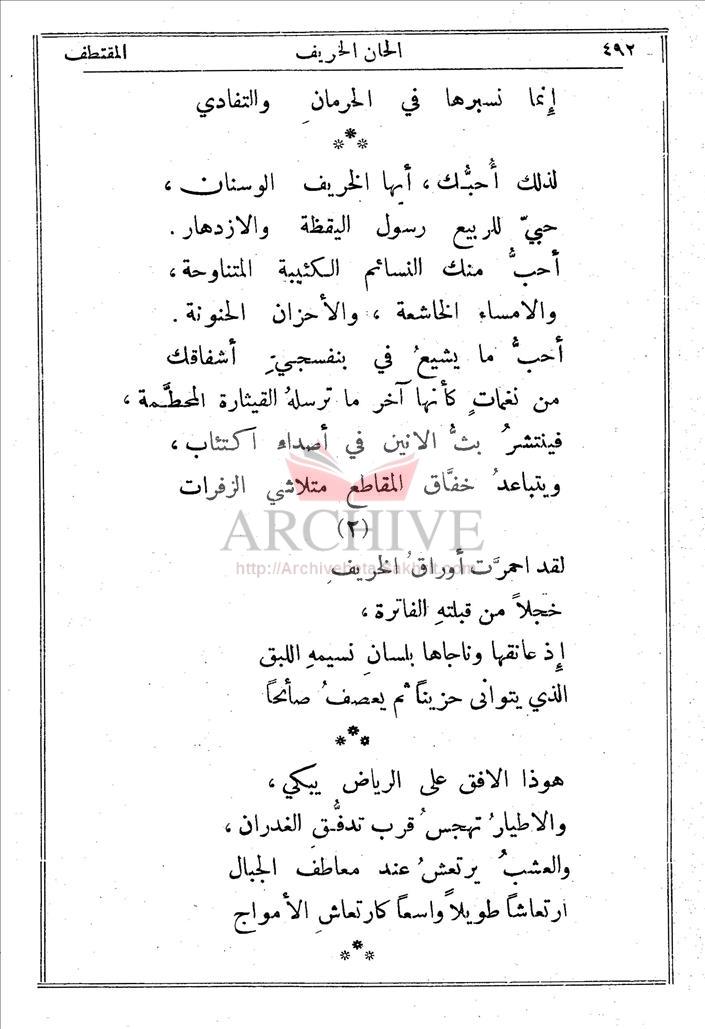 ٤٩٢ الحان الخريف المقتطف
إِنما نسبرها في الحرمانِ والتفادي
لذلك أُحبُّك ، أيها الخريف الوسنان ،
حبيّ للربيع رسول اليقظة والازدهار .
أحبُّ منك النسائم الكئيبة المتناوحة ،
والامساء الخاشعة ، والأحزان الحنونة .
أحبُّ ما يشيعُ في بنفسجيّةِ أشفاقك
من نغماتٍ كأنها آخر ما ترسلهُ القيثارة المحطَّمة ،
فينتشرُ بثُّ الانين في أصداء اكتئاب ،
ويتباعدُ خفَّاق المقاطع متلاشي الزفرات
ARCHIVE
(٢)
http://Archivebeta.Sakhrit.com
لقد احمرَّت أوراقُ الخريفِ
خجلاً من قبلتهِ الفاترة ،
إِذ عانقها وناجاها بلسانِ نسيمهِ اللبق
الذي يتوانى حزيناً ثم يعصفُ صائحاً
هوذا الافق على الرياض يبكي ،
والاطيارُ تهجسُ قرب تدفُّقِ الغدران ،
والعشبُ يرتعشُ عند معاطف الجبال
ارتعاشاً طويلاً واسعاً كارتعاشِ الأمواج